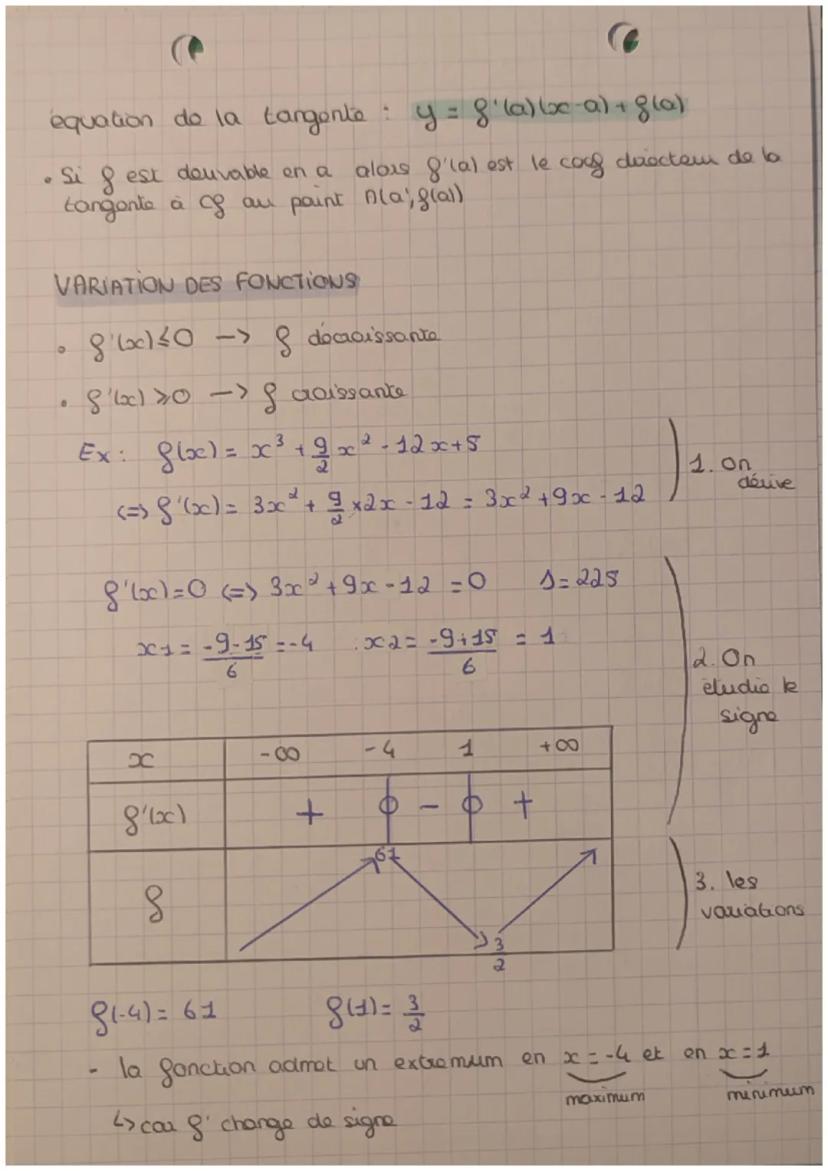 équation de la tangente : y = f'(a)(x-a) + f(a)
• Si f est dérivable en a alors f'(a) est le coef directeur de la
tangente à Cf au point A(a;f(a))
VARIATION DES FONCTIONS
• f'(x) ≤ 0 -> f décroissante
• f'(x) ≥ 0 -> f croissante
Ex : f(x) = x³ + 9/2 x² - 12x + 5
<=> f'(x) = 3x² + 9/2 × 2x - 12 = 3x² + 9x - 12
1. On
dérive
f'(x) = 0 <=> 3x² + 9x - 12 = 0 Δ = 225
x1 = (-9-15)/6 = -4 x2 = (-9+15)/6 = 1
2. On
étudie le
signe
x -∞ -4 1 +∞
f'(x) + 0 - 0 +
f 61 3/2
3. les
variations
f(-4) = 61 f(1) = 3/2
- la fonction admet un extremum en x = -4 et en x = 1
maximum minimum
↳ car f' change de signe